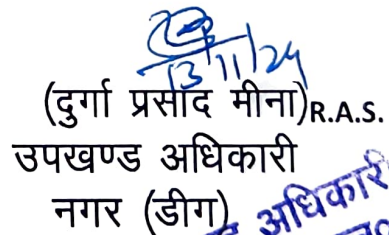 13/11/24
(दुर्गा प्रसाद मीना)R.A.S.
उपखण्ड अधिकारी
नगर (डीग)
अधिकारी